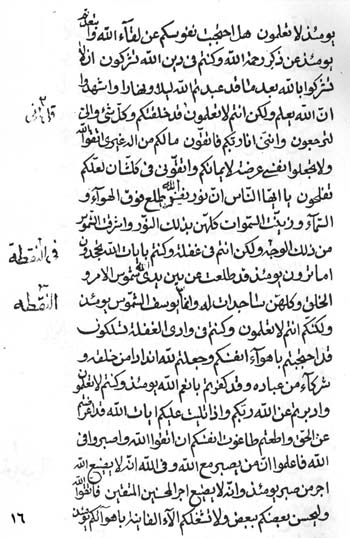 يومئذ لا تعلمون هل احتجبت نفوسكم عن لقآء الله وانتم
يومئذ عن ذكر رحمة الله وكنتم فى دين الله تشركون ان لا
تشركوا بالله بعد ما قد عبدتم الله ليلا ونهارا واشهدوا
ان الله يعلم ولكن انتم لا تعلمون قد خلقكم وكلشئ واليه
لترجعون وانى انا ربكم فاتقون مالكم من اله غيرى اتقوا الله
ولا تجعلوا انفسى عرضة لايمانكم واتقونى فى كلشأن لعلكم
تفلحون يا ايها الناس ان نور ربى يطلع فوق الهوآء و
السمآء وزينت السموات كلهن بذلك النور واشرقت الشموس
من ذلك الوجه ولكن انتم فى غفلة وكنتم بايات الله تجحدون
اما ترون يومئذ قد طلعت عن بين يدى شموس الامر و
الخلق وكلهن ساجدات له وانها يوسف الشموس يومئذ
ولكنكم انتم لا تعلمون وكنتم فى وادى الغفلة تسلكون
قد احتجبتم باهوآء انفسكم وجعلتم لله اندادا من خلقه و
شركآء من عباده وقد كفرتم بانعم الله يومئذ وكنتم لا تعلمون
وادبرتم عن الله ربكم واذا تليت عليكم ايات الله قد اعرضتم
عن الحق واطعتم طاغوت انفسكم ان اتقوا الله واصبروا فى
الله فاعلموا انه من يصبر مع الله وفى الله انه لا يضيع الله
اجر من صبر يومئذ وانه لا يضيع اجر المحسنين المتقين فاتقوا الله
وليحسن بعضكم ببعض ولا تشغلكم الآلآء الفانية باهوآئكم يومئذ
فى النقطة
النقطة
١٦